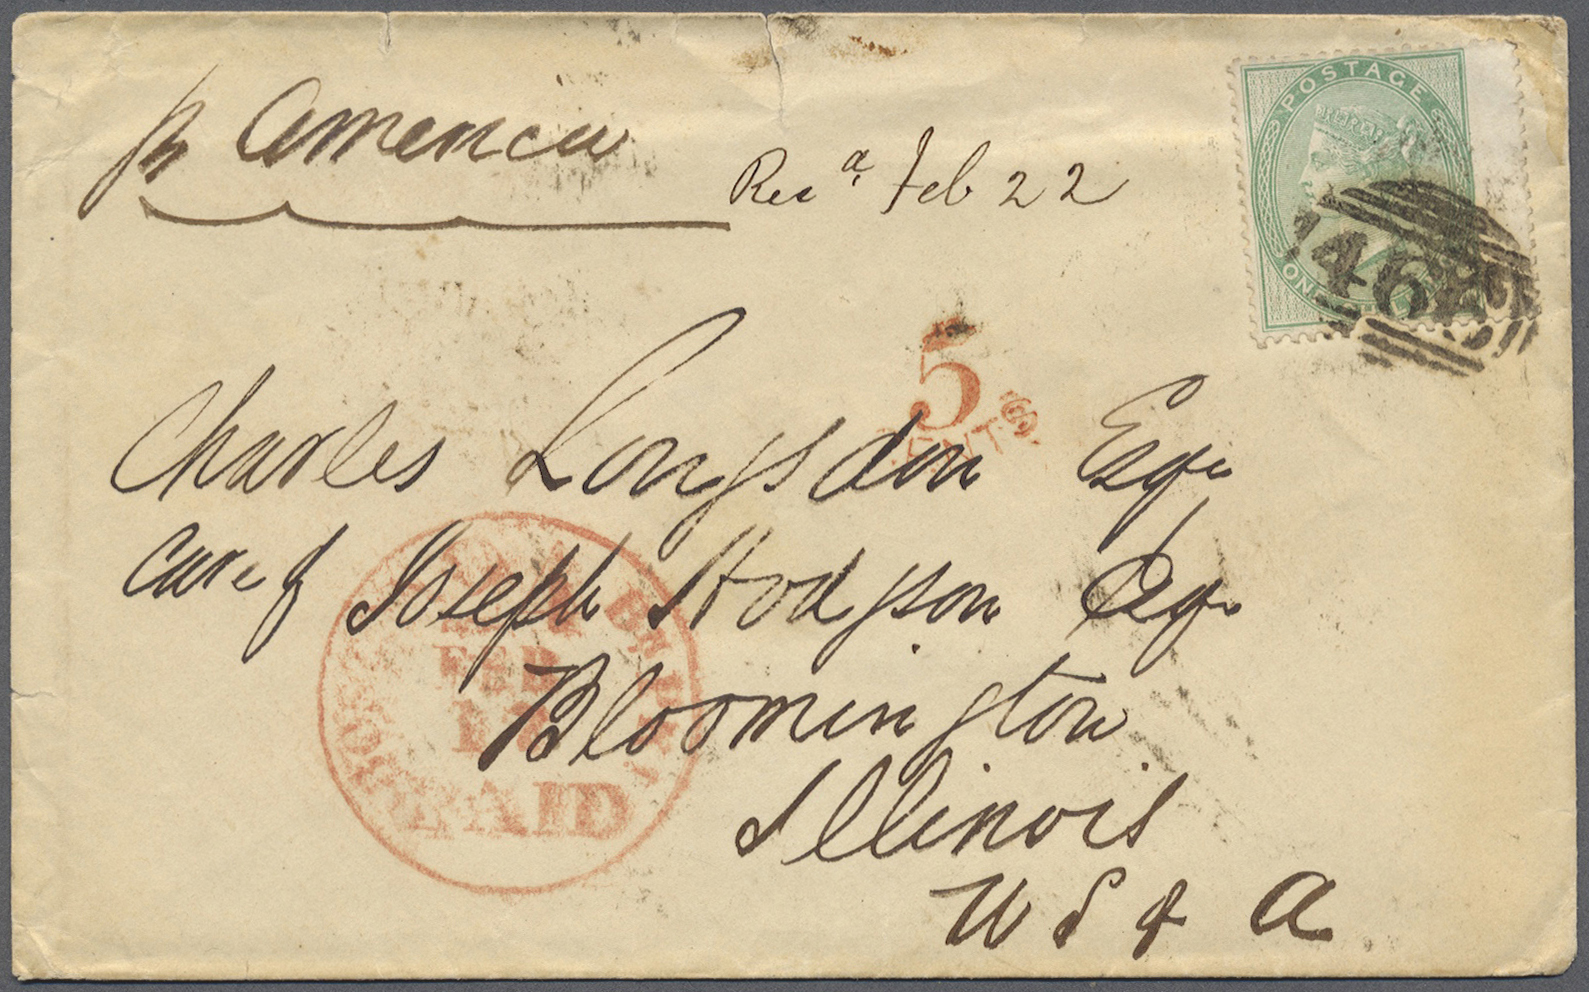 pr America
Recd. Feb 22
POSTAGE
ONE
466
5
CENTS
Charles Longsdon Esqr
Care of Joseph Hodgson Esqr
Bloomington
Illinois
U S of A
BOSTON BR. PKT.
FEB
PAID